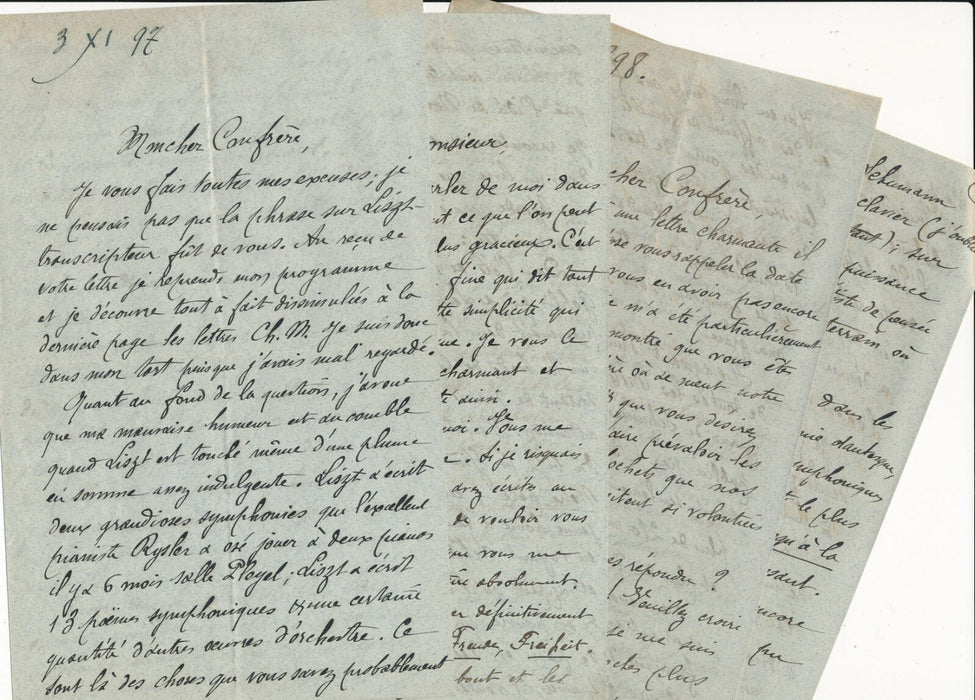 3 XI 97
Mon cher Confrère,
Je vous fais toutes mes excuses ; je
ne pensais pas que la phrase sur Liszt-
transcripteur fût de vous. Au reçu de
votre lettre je reprends mon programme
et je découvre tout à fait dissimulées à la
dernière page les lettres Ch. M. Je suis donc
dans mon tort puisque j'avais mal regardé.
Quant au fond de la question, j'avoue
que ma mauvaise humeur est au comble
quand Liszt est touché même d'une plume
en somme assez indulgente. Liszt a écrit
deux grandioses symphonies que l'excellent
pianiste Rysler a osé jouer à deux pianos
il y a 6 mois salle Pleyel ; Liszt a écrit
13 poëmes symphoniques & une certaine
quantité d'autres œuvres d'orchestre. Ce
sont là des choses que vous savez probablement
nsieur,
rler de moi dans
t ce que l'on peut
lus gracieux. C'est
fine qui dit tant
te simplicité qui
ue. Je vous le
charmant et
divin.
moi. Vous me
. Si je risquais
avez écrits au
de vouloir vous
que vous me
absolument.
er définitivement
Freude, Freiheit.
bout et les
98.
cher Confrère,
une lettre charmante il
vous rappeler la date
vous en avoir pas encore
m'a été particulièrement
montre que vous êt
où se meut notre
que vous désirez
faire prévaloir les
ochets que nos
itent si volontiers
répondre ?
Veuillez croire
je me suis
les plus
Schumann
clavier (j'oublie
tant) ; sur
puissance
iste de pensée
terrain où
dans les
nie dantesque,
mphoniques
t le plus
qu'à la
sant.
encore
pu